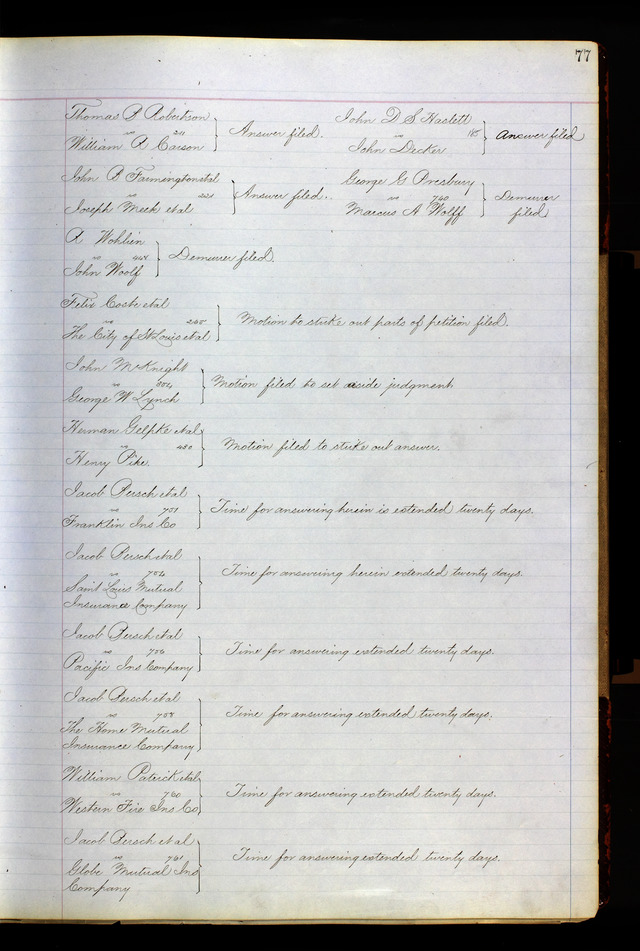 77
Thomas P Robertson
vs 211
William A Carson
Answer filed.
John D S Haslett
vs 185
John Decker
Answer filed
John B Farmington et al
vs 221
Joseph Meek et al
Answer filed.
George G Presbury
vs 760
Marcus A Wolff
Demurrer
filed
A Wohlien
vs 448
John Woolf
Demurrer filed.
Felix Coste et al
vs 248
The City of St Louis et al
Motion to strike out parts of petition filed.
John McKnight
vs 304
George W Lynch
Motion filed to set aside judgment
Herman Gelpke et al
vs 480
Henry Pike.
Motion filed to strike out answer.
Jacob Persch et al
vs 701
Franklin Ins Co
Time for answering herein is extended twenty days.
Jacob Persch et al
vs 704
Saint Louis Mutual
Insurance Company
Time for answering herein extended twenty days.
Jacob Persch et al
vs 706
Pacific Ins Company
Time for answering extended twenty days.
Jacob Persch et al
vs 708
The Home Mutual
Insurance Company
Time for answering extended twenty days.
William Patrick et al
vs 760
Western Fire Ins Co
Time for answering extended twenty days.
Jacob Persch et al
vs 761
Globe Mutual Ins
Company
Time for answering extended twenty days.